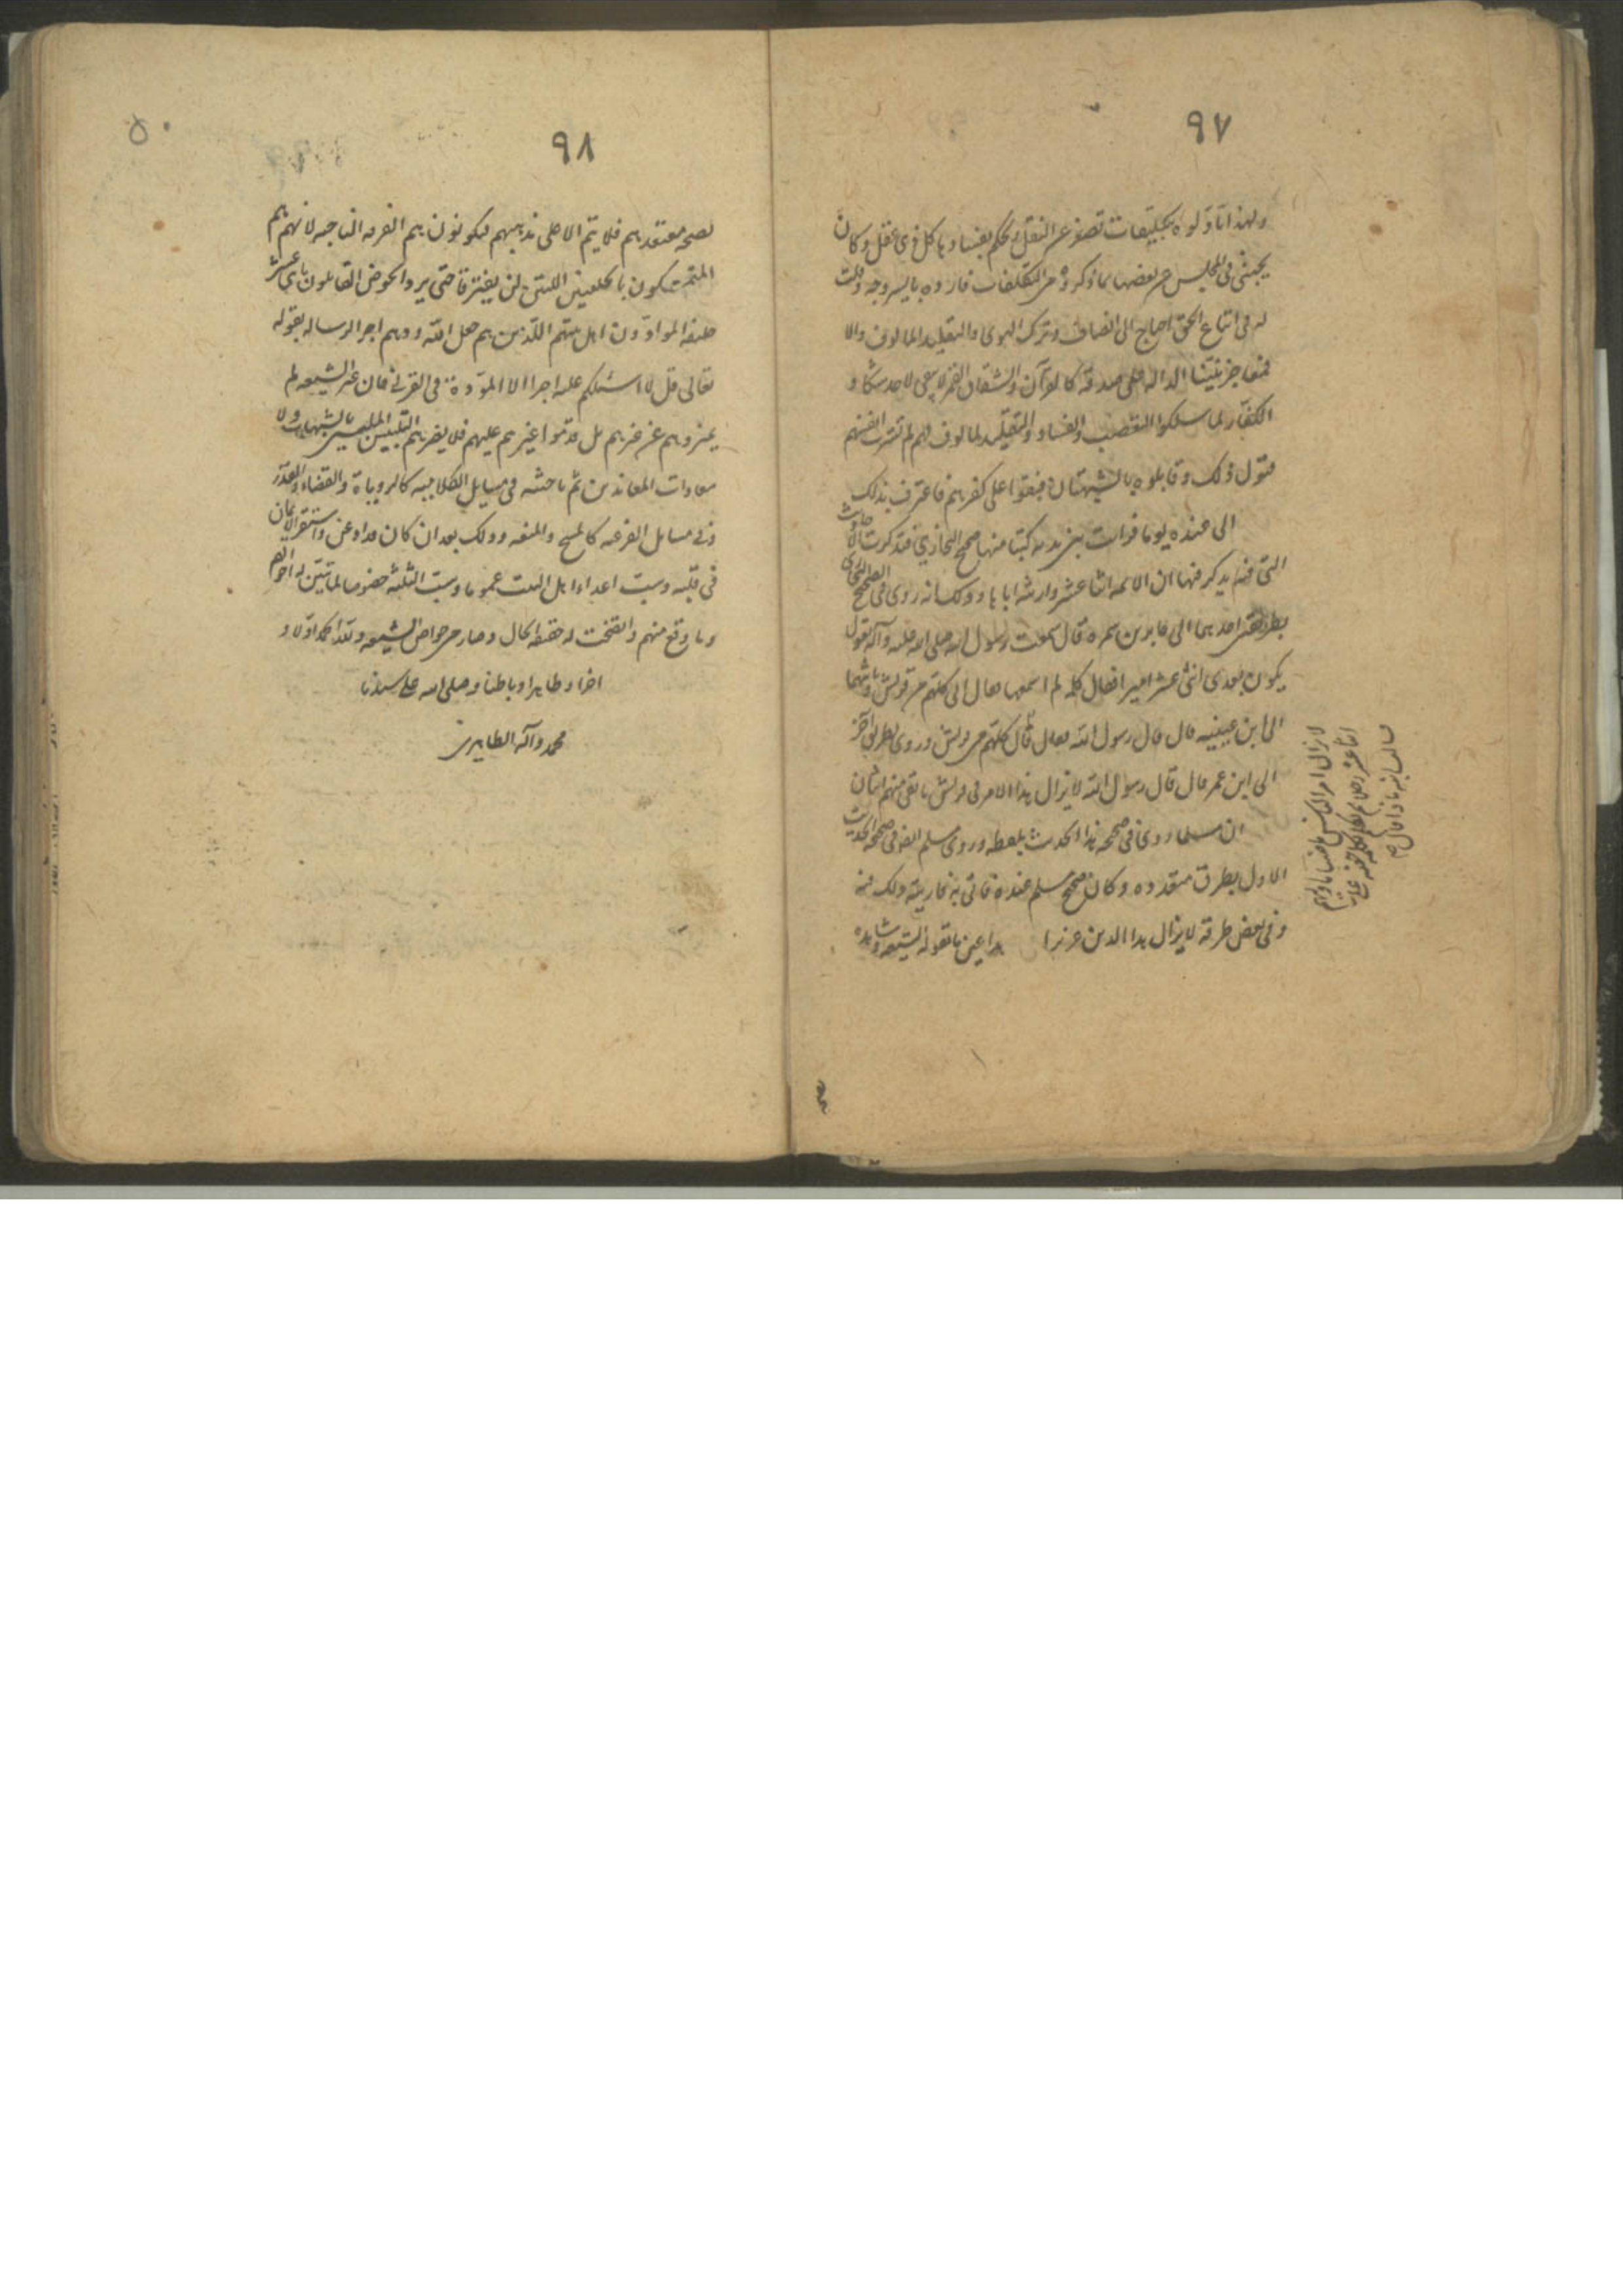 ٩٧
ولهذا تأولوه بتكليفات تصنع عن النقل ويحكم بفسادها كل ذى عقل وكان
يجيبنى فى المجلس عن بعضها بما ذكروه من التكلفات فارده بايسر وجه وقلت
له فى اتباع الحق احتاج الى انصاف وترك الهوى والتقليد المألوف والا
فمعاجز نبينا الداله على صدقه كالقرآن وانشقاق القمر لا يبقى لاحد شكا و
الكفار لما سلكوا التعصب والفساد والتقليد المالوف لهم لم تشرب انفسهم
قبول ذلك وقابلوه بالشبهتان فبقوا على كفرهم فاعترف بذلك
الى عنده يوما فرايت بين يديه كتبا منها صحيح البخارى فتذكرت الاحاديث
التى فيه يذكر فيها ان الائمه اثنا عشر وارشه اياها وذلك انه روى فى الصحيح البخارى
بطريقين احدهما الى جابر بن سمره قال سمعت رسول الله صلى الله عليه وآله يقول
يكون بعدى اثنى عشر امير افقال كلمه لم اسمعها فقال ابى كلهم من قريش وثانيهما
الى ابن عيينه قال قال رسول الله فقال قال كلهم من قريش وروى بطريق آخر
الى ابن عمر قال قال رسول الله لا يزال هذا الامر فى قريش ما بقى منهم اثنان
ان مسلما روى فى صحيحه هذا الحديث بلفظه وروى مسلم ايضا فى صحيحه الحديث
الاول بطرق متعدده وكان صحيح مسلم عنده فاتى به فاريته ذلك فيه
وفى بعض طرقه لا يزال هذا الدين عزيزا هذا عين ما تقوله الشيعه وشاهده
لا يزال امر الناس ماضيا ما وليهم
اثنا عشر رجلا ثم تكلم بكلمه خفيه على
٩٨
لصحه معتقدهم فلا يتم الا على مذهبهم فيكونون هم الفرقه الناجيه لانهم هم
المتمسكون بالخليفين اللتين لن يفترقا حتى يردا الحوض القايلون باثنى عشر
خليفه الموادون اهل بيتهم الذين هم حبل الله وودهم اجر الرساله بقوله
تعالى قل لا اسئلكم عليه اجرا الا المودة فى القربى فان غير الشيعه لم
يميزوهم عن غيرهم بل قدموا غيرهم عليهم فلا يضرهم التلبيس الملبسين بالشبهات ولا
معادات المعاندين ثم باحثته فى مسايل الكلاميه كالروياة والقضاء والقدر
وفى مسايل الفرعيه كالمسح والمتعه وذلك بعد ان كان قد اذعن واستقر الايمان
فى قلبه وسب اعداء اهل البيت عموما وسب الثلثه خصوصا لما تبين له احوالهم
وما وقع منهم واتضحت له حقيقه الحال وصار من خواص الشيعه ولله الحمد اولا و
اخرا وظاهرا وباطنا وصلى الله على سيدنا
محمد وآله الطاهرين